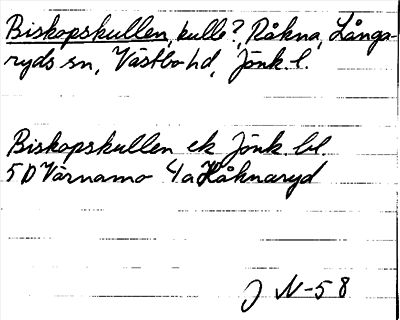 Biskopskullen, kulle?, Råkna, Långa-
ryds sn, Västbo hd, Jönk. l.
Biskopskullen ek Jönk. bl.
5D Värnamo 4a Håknaryd
J N-58